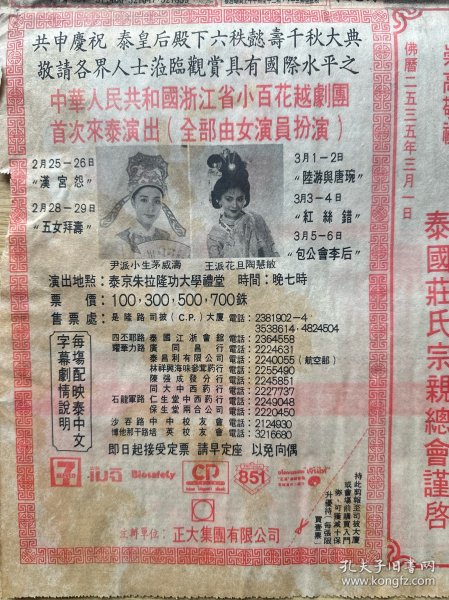 共申慶祝 泰皇后殿下六秩懿壽千秋大典
敬請各界人士蒞臨觀賞具有國際水平之
中華人民共和國浙江省小百花越劇團
首次來泰演出(全部由女演員扮演)
2月25-26日
“漢宮怨”
2月28-29日
“五女拜壽”
3月1-2日
“陸游與唐琬”
3月3-4日
“紅絲錯”
3月5-6日
“包公會李后”
尹派小生茅威濤
王派花旦陶慧敏
演出地點：泰京朱拉隆功大學禮堂 時間：晚七時
票 價：100,300,500,700銖
售票處：是隆路司披(C.P.)大廈 電話：2381902-4
3538614·4824504
四丕耶路 泰國江浙會館 電話：2364558
耀華力路 廣同昌行 電話：2224631
泰昌利有限公司 電話：2240055(航空部)
林祥興海味蔘茸葯行 電話：2255490
陳強成發分行 電話：2245851
同大中西葯行 電話：2227737
石龍軍路 仁生堂中西葯行 電話：2249048
保生堂兩合公司 電話：2220450
沙吞路 中中校友會 電話：2124930
博他那干路 培英校友會 電話：3216680
即日起接受定票 請早定座 以免向偶
每場配映泰中文
字幕劇情說明
7
ELEVEN
เมจิ
Biosafety
CP
851
主辦單位：正大集團有限公司
持此剪報至司披大廈
或會場前購買入門
券，可獲減十保
升優待(每張限
買壹票)
佛曆二五三五年三月一日
泰國莊氏宗親總會謹啓
孔夫子旧书网
kongfz.com